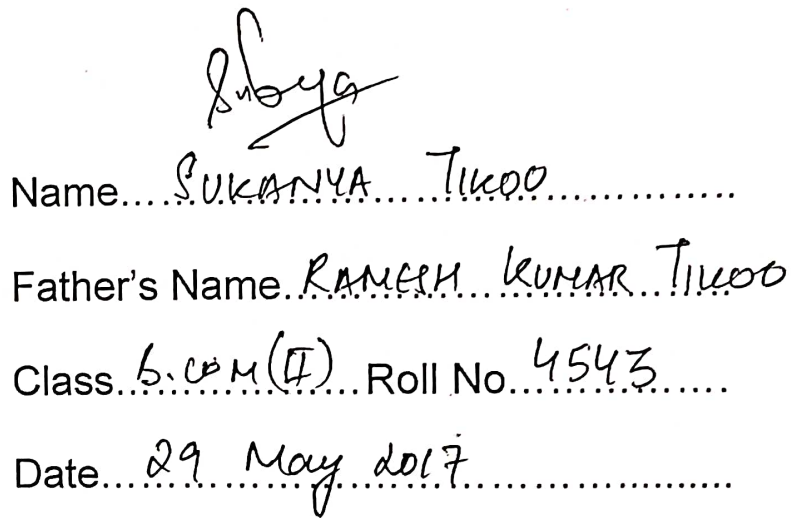 Name....SUKANYA TIKOO
Father's Name..RAMESH KUMAR TIKOO
Class..B.COM(II)....Roll No...4543......
Date...29 May 2017